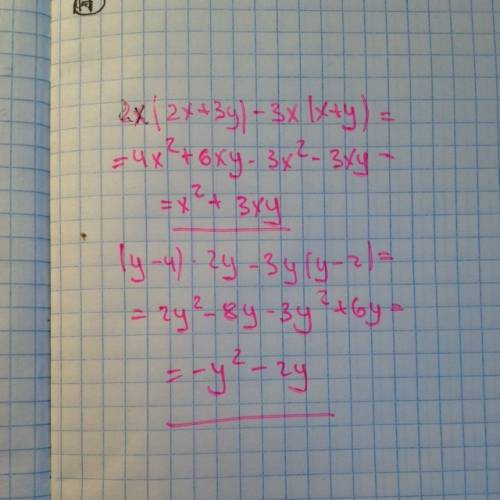 2x(2x+3y)-3x(x+y)=
=4x²+6xy-3x²-3xy-
=x²+3xy
(y-4)·2y-3y(y-2)=
=2y²-8y-3y²+6y=
=-y²-2y